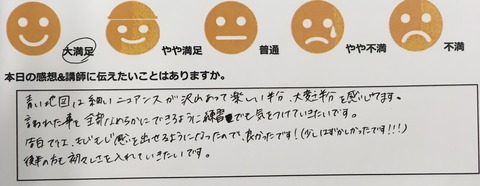 大満足 やや満足 普通 やや不満 不満
本日の感想&講師に伝えたいことはありますか。
青い地図は細いニュアンスが沢山あって楽しい半分、大変半分を感じてます。
言われた事を全部なめらかにできるように練習でも気をつけていきたいです。
告白では、もじもじ感を出せるようになったので、良かったです!(少しはずかしかったです!!!)
後半の方も初々しさを入れていきたいです。